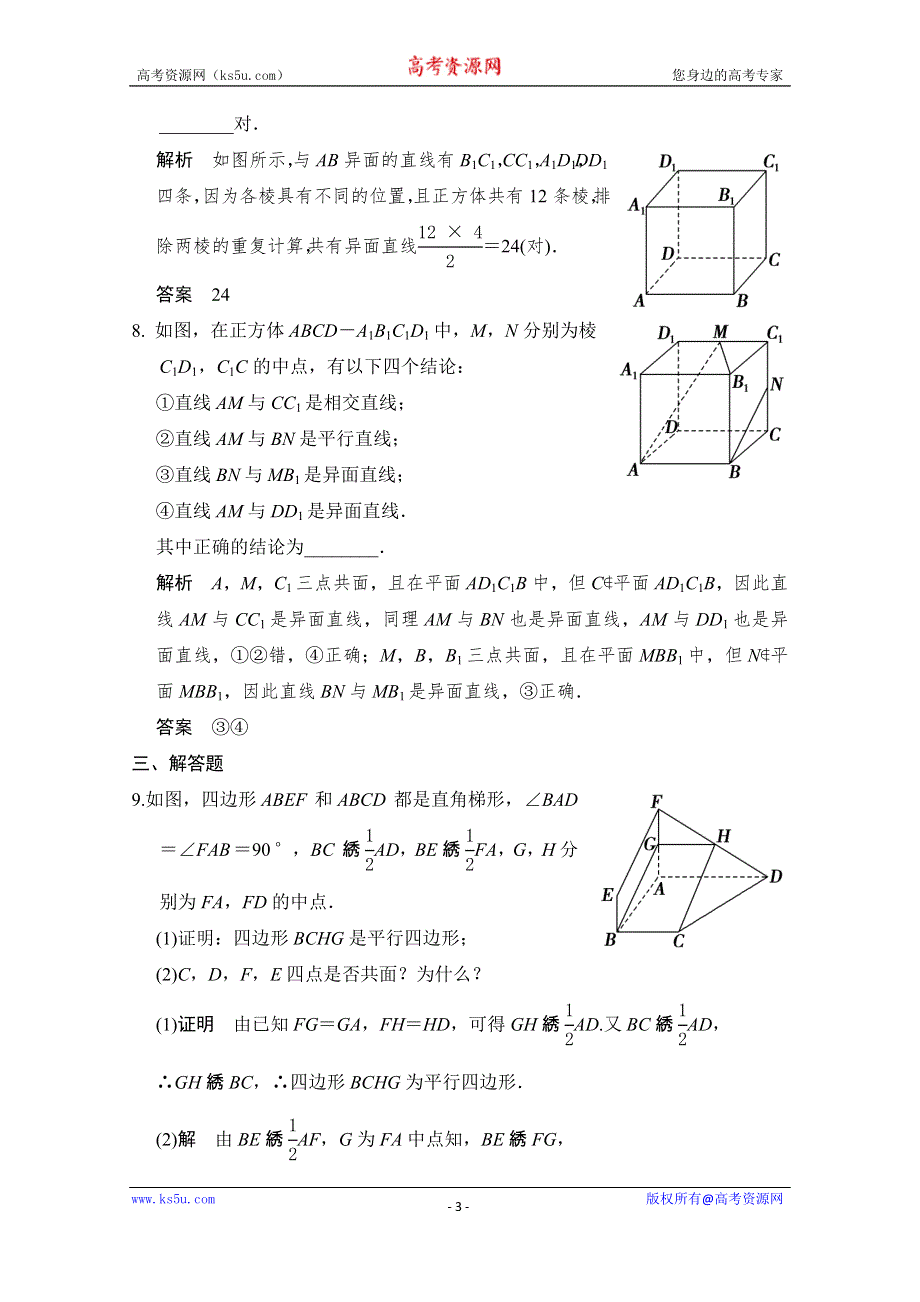 高考资源网（ks5u.com） 高考资源网 您身边的高考专家
________对．
解析 如图所示，与 AB 异面的直线有 B₁C₁，CC₁，A₁D₁，DD₁
四条，因为各棱具有不同的位置，且正方体共有 12 条棱，排
除两棱的重复计算，共有异面直线 12 × 4/2＝24(对)．
答案 24
D₁ C₁
A₁ B₁
D C
A B
8. 如图，在正方体 ABCD－A₁B₁C₁D₁ 中，M，N 分别为棱
C₁D₁，C₁C 的中点，有以下四个结论：
①直线 AM 与 CC₁ 是相交直线；
②直线 AM 与 BN 是平行直线；
③直线 BN 与 MB₁ 是异面直线；
④直线 AM 与 DD₁ 是异面直线．
其中正确的结论为________．
D₁ M C₁
A₁ B₁ N
D C
A B
解析 A，M，C₁ 三点共面，且在平面 AD₁C₁B 中，但 C∉平面 AD₁C₁B，因此直
线 AM 与 CC₁ 是异面直线，同理 AM 与 BN 也是异面直线，AM 与 DD₁ 也是异
面直线，①②错，④正确；M，B，B₁ 三点共面，且在平面 MBB₁ 中，但 N∉平
面 MBB₁，因此直线 BN 与 MB₁ 是异面直线，③正确．
答案 ③④
三、解答题
9.如图，四边形 ABEF 和 ABCD 都是直角梯形，∠BAD
＝∠FAB＝90°，BC 綉 1/2 AD，BE 綉 1/2 FA，G，H 分
别为 FA，FD 的中点．
F
G H
A D
E
B C
(1)证明：四边形 BCHG 是平行四边形；
(2)C，D，F，E 四点是否共面？为什么？
(1)证明 由已知 FG＝GA，FH＝HD，可得 GH 綉 1/2 AD.又 BC 綉 1/2 AD，
∴GH 綉 BC，∴四边形 BCHG 为平行四边形．
(2)解 由 BE 綉 1/2 AF，G 为 FA 中点知，BE 綉 FG，
www.ks5u.com - 3 - 版权所有@高考资源网